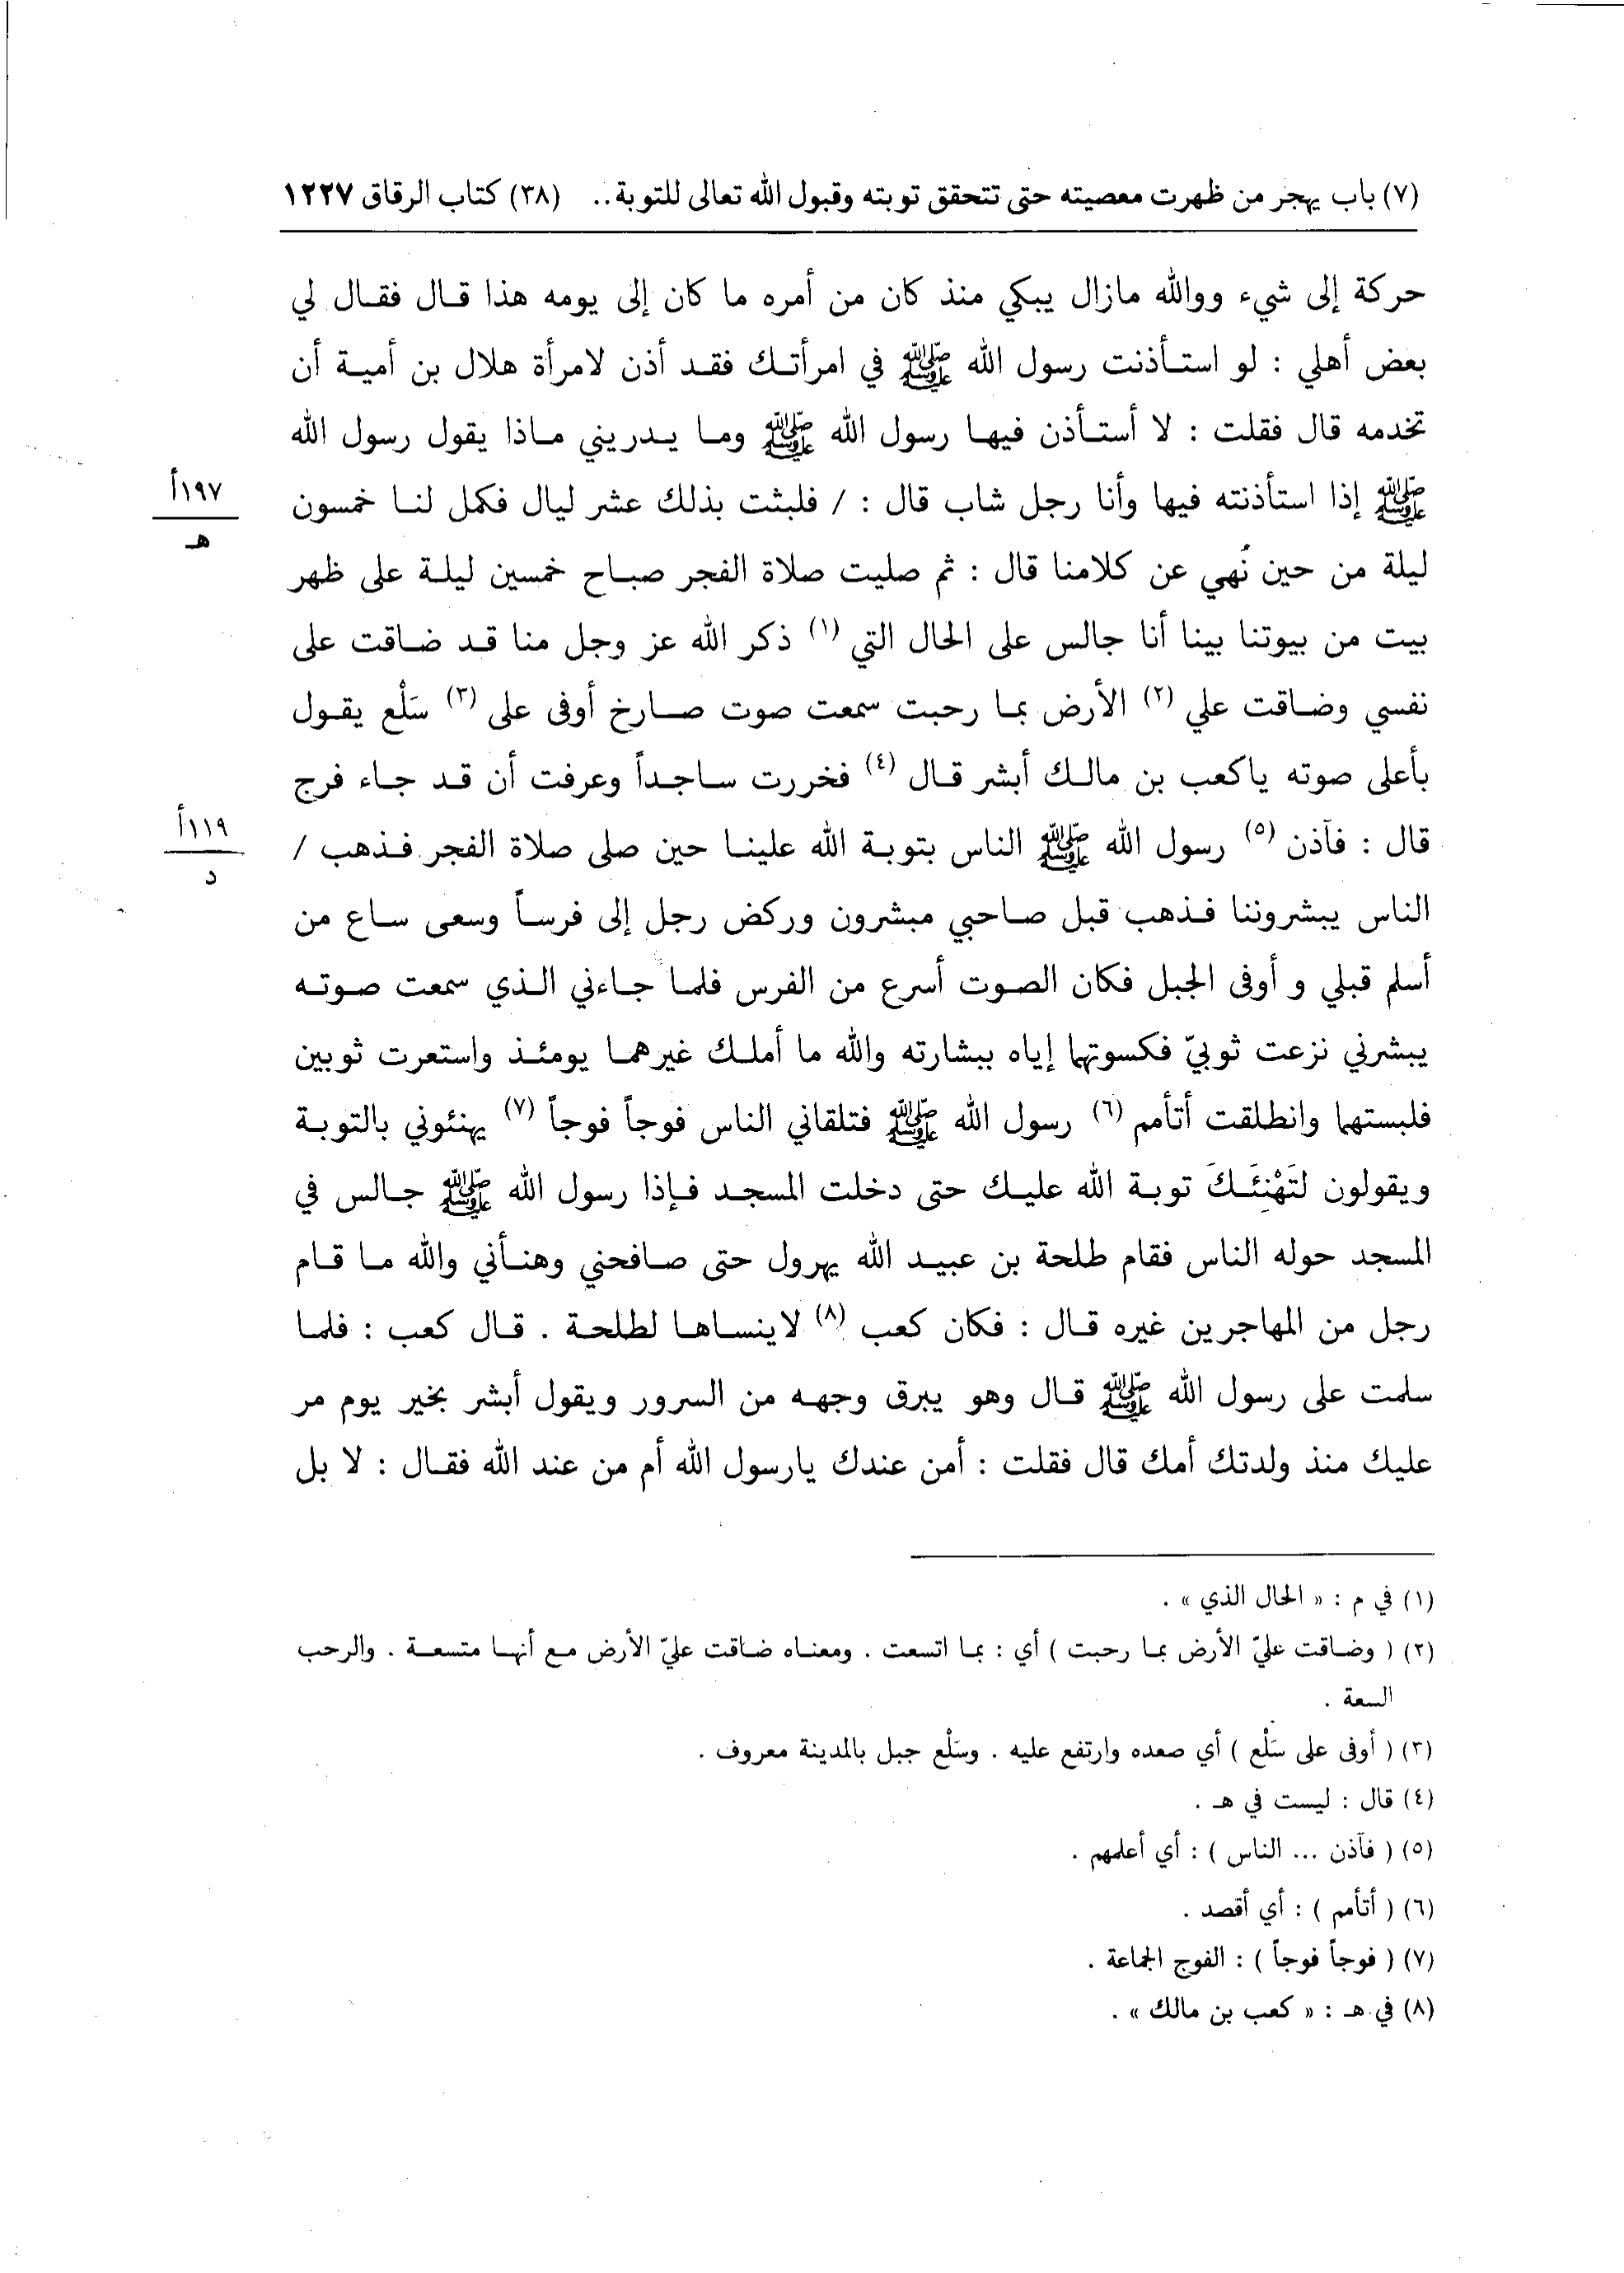 (٧) باب يهجر من ظهرت معصيته حتى تتحقق توبته وقبول الله تعالى للتوبة.. (٣٨) كتاب الرقاق ١٢٢٧
حركة إلى شيء ووالله مازال يبكي منذ كان من أمره ما كان إلى يومه هذا قال فقال لي
بعض أهلي : لو استأذنت رسول الله ﷺ في امرأتك فقد أذن لامرأة هلال بن أمية أن
تخدمه قال فقلت : لا أستأذن فيها رسول الله ﷺ وما يدريني ماذا يقول رسول الله
ﷺ إذا استأذنته فيها وأنا رجل شاب قال : / فلبثت بذلك عشر ليال فكمل لنا خمسون
١٩٧أ
هـ
ليلة من حين نُهي عن كلامنا قال : ثم صليت صلاة الفجر صباح خمسين ليلة على ظهر
بيت من بيوتنا بينا أنا جالس على الحال التي (١) ذكر الله عز وجل منا قد ضاقت على
نفسي وضاقت علي (٢) الأرض بما رحبت سمعت صوت صارخ أوفى على (٣) سَلْع يقول
بأعلى صوته ياكعب بن مالك أبشر قال (٤) فخررت ساجداً وعرفت أن قد جاء فرج
قال : فآذن (٥) رسول الله ﷺ الناس بتوبة الله علينا حين صلى صلاة الفجر فذهب /
١١٩أ
د
الناس يبشروننا فذهب قبل صاحبي مبشرون وركض رجل إلى فرساً وسعى ساع من
أسلم قبلي و أوفى الجبل فكان الصوت أسرع من الفرس فلما جاءني الذي سمعت صوته
يبشرني نزعت ثوبيّ فكسوتهما إياه ببشارته والله ما أملك غيرهما يومئذ واستعرت ثوبين
فلبستهما وانطلقت أتأمم (٦) رسول الله ﷺ فتلقاني الناس فوجاً فوجاً (٧) يهنئوني بالتوبة
ويقولون لتَهْنِئَكَ توبة الله عليك حتى دخلت المسجد فإذا رسول الله ﷺ جالس في
المسجد حوله الناس فقام طلحة بن عبيد الله يهرول حتى صافحني وهنأني والله ما قام
رجل من المهاجرين غيره قال : فكان كعب (٨) لاينساها لطلحة . قال كعب : فلما
سلمت على رسول الله ﷺ قال وهو يبرق وجهه من السرور ويقول أبشر بخير يوم مر
عليك منذ ولدتك أمك قال فقلت : أمن عندك يارسول الله أم من عند الله فقال : لا بل
(١) في م : « الحال الذي » .
(٢) ( وضاقت عليّ الأرض بما رحبت ) أي : بما اتسعت . ومعناه ضاقت عليّ الأرض مع أنها متسعة . والرحب
السعة .
(٣) ( أوفى على سَلْع ) أي صعده وارتفع عليه . وسَلْع جبل بالمدينة معروف .
(٤) قال : ليست في هـ .
(٥) ( فآذن ... الناس ) : أي أعلمهم .
(٦) ( أتأمم ) : أي أقصد .
(٧) ( فوجاً فوجاً ) : الفوج الجماعة .
(٨) في هـ : « كعب بن مالك » .